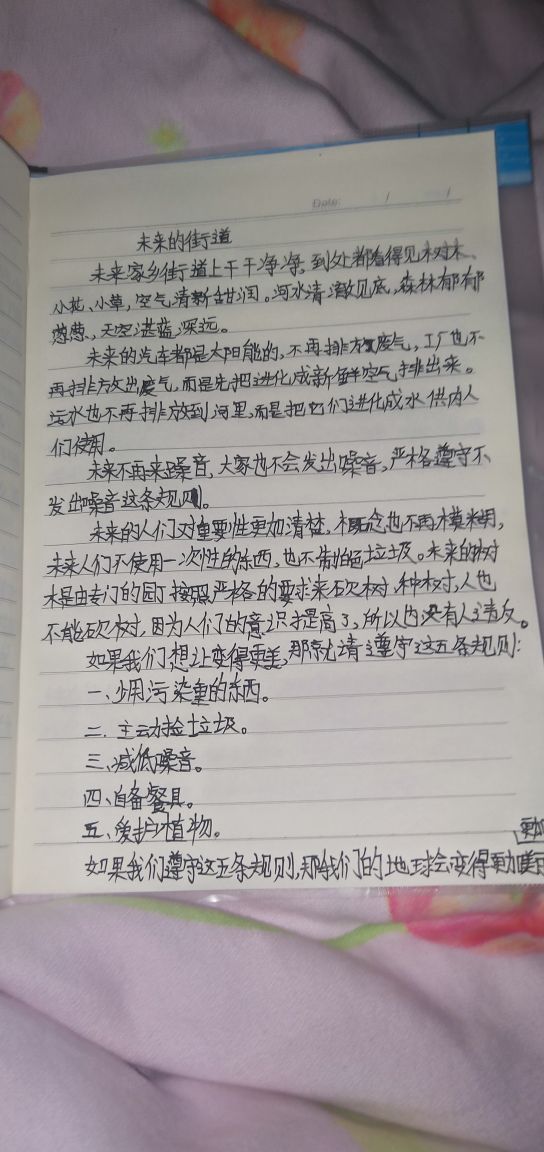 Date: / /
未来的街道
未来家乡街道上干干净净,到处都看得见树木、
小花、小草,空气清新甜润。河水清澈见底,森林郁郁
葱葱、,天空湛蓝深远。
未来的汽车都是太阳能的,不再排放废气,工厂也不
再排放出废气,而是先把进化成新鲜空气排出来。
污水也不再排放到河里,而是把它们进化成水供内人
们使用。
未来不再来噪音,大家也不会发出噪音,严格遵守不
发出噪音这条规则。
未来的人们对重要性更加清楚,概念也不再模糊,
未来人们不使用一次性的东西,也不制造垃圾。未来的树
木是由专门的园丁按照严格的要求来砍树,种树,人也
不能砍树,因为人们的意识提高了,所以也没有人违反。
如果我们想让变得更美,那就请遵守这五条规则:
一、少用污染重的东西。
二、主动捡垃圾。
三、减低噪音。
四、自备餐具。
五、爱护植物。
更加
如果我们遵守这五条规则,那我们的地球会变得更加美